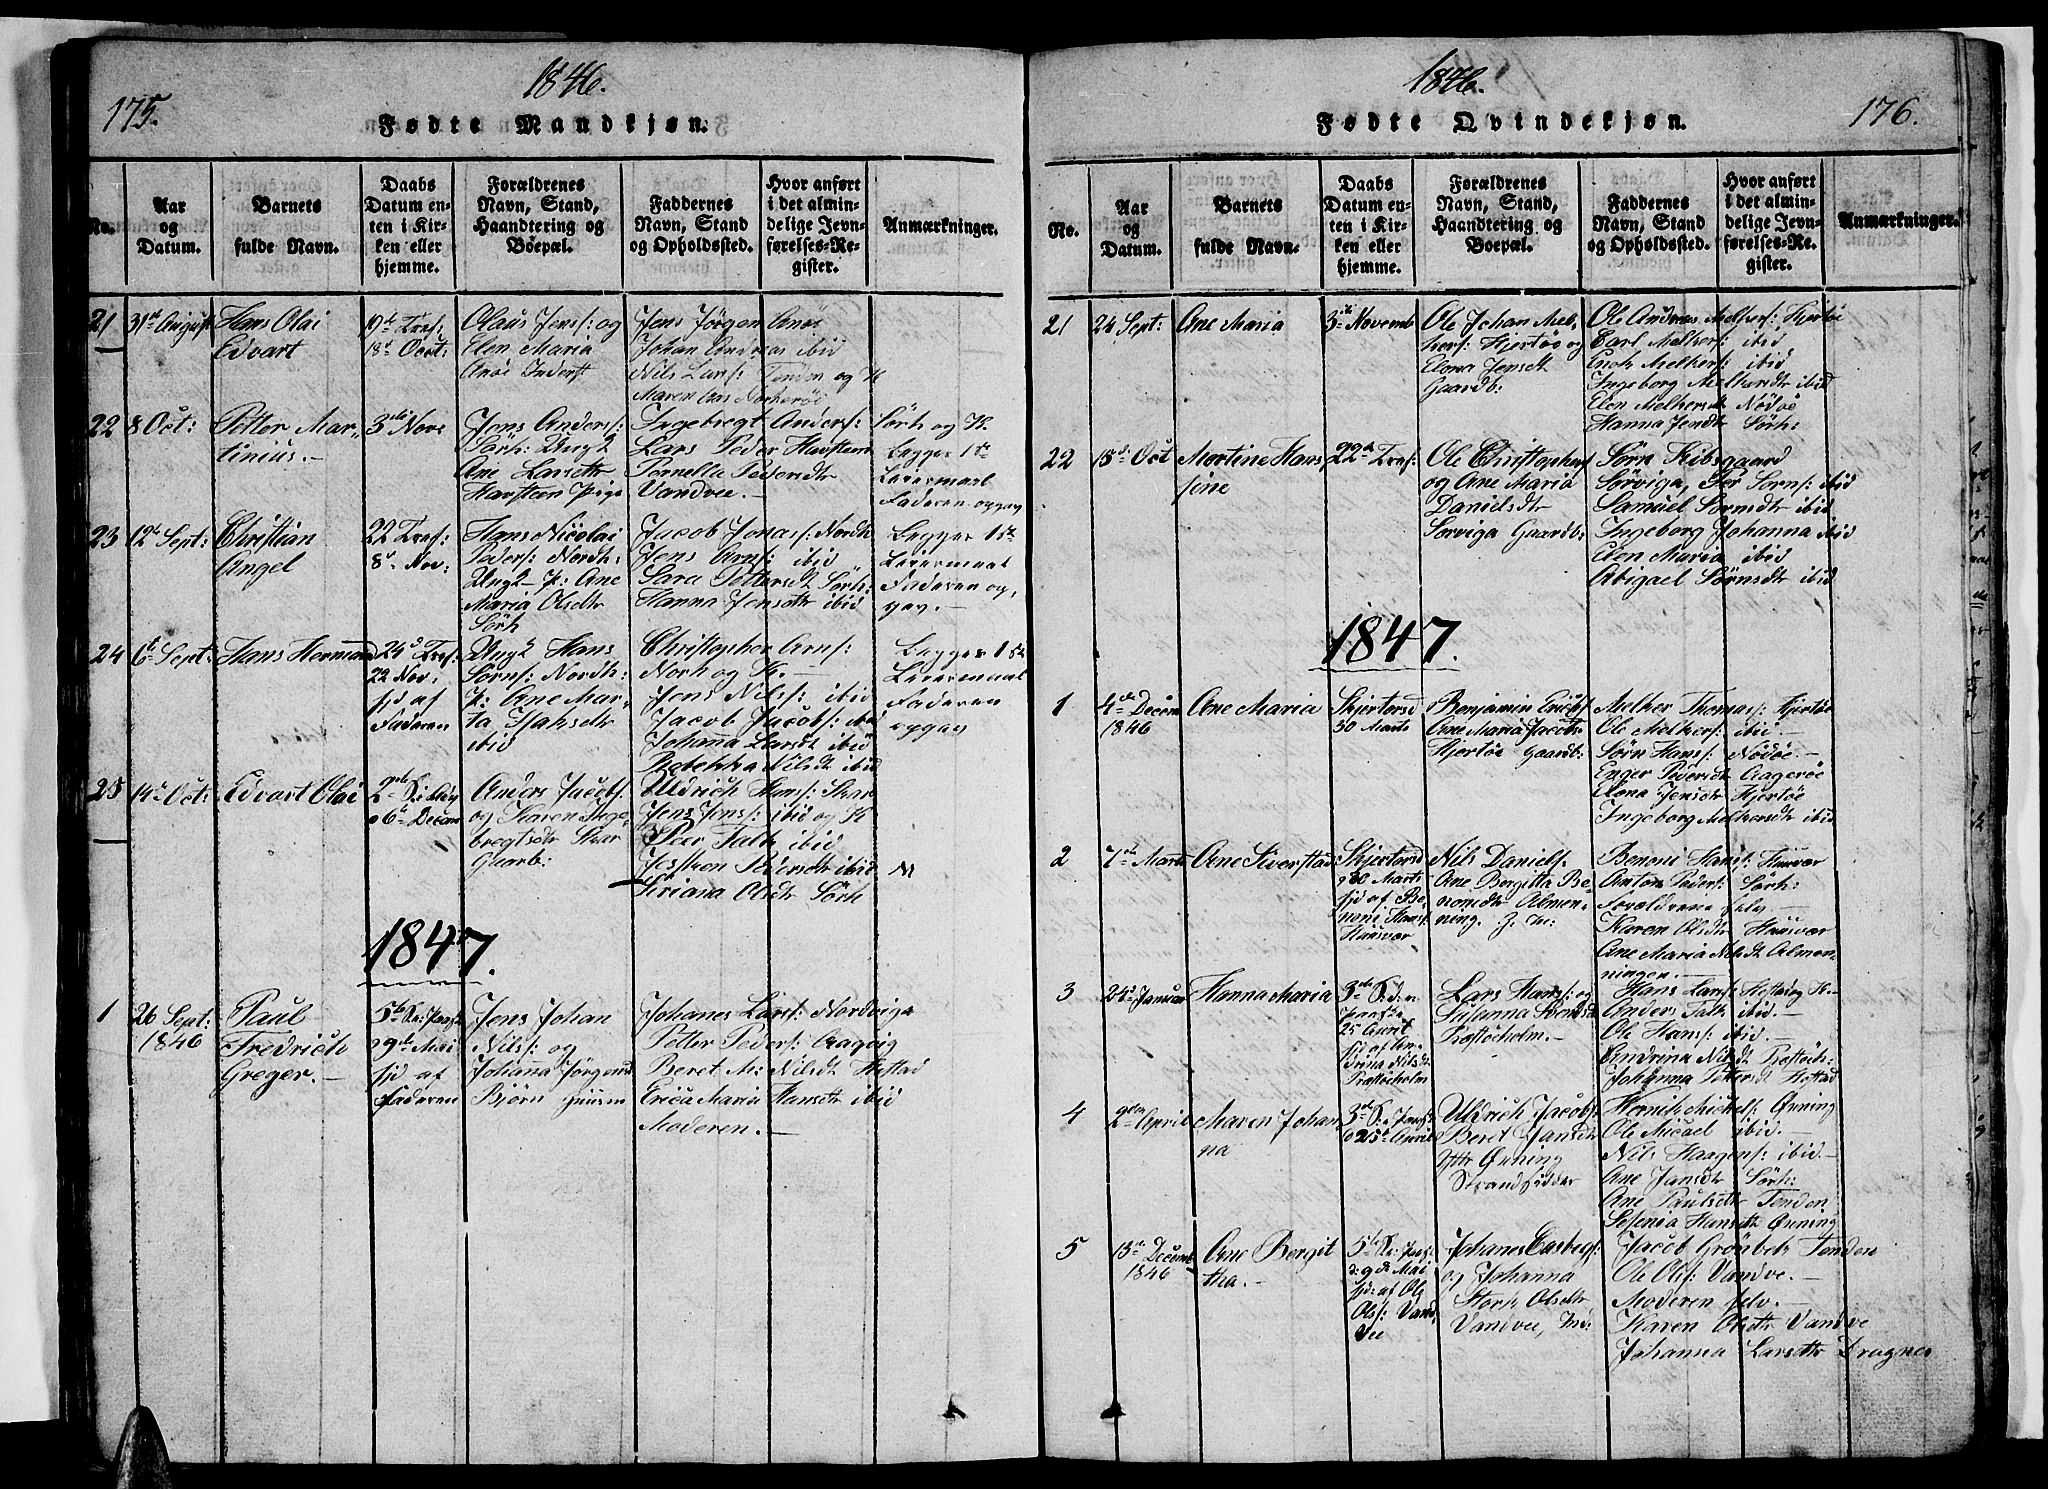 175.
1846.
Fødte Mandkjøn.
No.
Aar
og
Datum.
Barnets
fulde Navn.
Daabs
Datum en-
ten i Kir-
ken eller
hjemme.
Forældrenes
Navn, Stand,
Haandtering og
Boepæl.
Faddernes
Navn, Stand
og Opholdssted.
Hvor anført
i det almin-
delige Jevn-
førelses-Re-
gister.
Anmærkninger.
21
31te August
Hans Olai
Edvart
19de Tref:
18de Oct:
Olaus Jens: og
Elen Maria
Jens Jørgen
Johan Andreas ibid
Nils Lars: Tenden og K
22
8 Oct:
Petter Mar-
tinius.
3die Nov:
Jens Anders:
Sørh: Ungk
Ane Larsdtr
Havsteen Pige
Ingebregt Anders: Sørh og K.
Lars Peder Havsteen
Pernella Pedersdtr
Vandvee.
Begges 1ste
Leiermaal
Faderen opgav
23
12te Sept:
Christian
Angel
22 Tref:
8de Nov:
Hans Nicolai
Peders: Nordh:
Ungk P: Ane
Maria Olsdtr
Sørh
Jacob Jonas: Nordh
Jens Arns: ibid
Sara Pettersdt Sørh:
Hanna Jensdtr ibid
Begges 1ste
Leiermaal
Faderen op-
gav.
24
6te Sept:
Hans Hermand
24de Tref:
22 Nov:
hjd af
Faderen
Ungk Hans
Sørns: Nordh:
P: Ane Mar-
ta
ibid
Christopher Arns:
Norh og K.
Jens Nils: ibid
Jacob Jacobs: ibid
Johanna Larsdt ibid
Rebekka Nilsdt ibid
Begges 1ste
Leiermaal
Faderen
opgav
25
14de Oct:
Edvart Olai
2den S: i Adv
6te Decem
Anders Jacobs:
og Karen Inge-
bregtsdtr
Gaardb:
Uldrich Hans:
Jens Jens: ibid og K
Peer Falk ibid
Pedersdtr ibid
Siriana Olsdt Sørh
1847.
1
26 Sept:
1846
Paul
Fredrich
Greger.
5te S:
9de Mai
hjd af
Faderen
Jens Johan
Nils: og
Johana Jørgensd
Bjørn Huusm
Johanes Lars: Nordviga
Petter Peders: Aagvig
Beret M: Nilsdt Hestad
Erica Maria Hansdtr ibid
Moderen.
1846.
176.
Fødte Qvindekjøn.
No.
Aar
og
Datum.
Barnets
fulde Navn.
Daabs
Datum en-
ten i Kir-
ken eller
hjemme.
Forældrenes
Navn, Stand,
Haandtering og
Boepæl.
Faddernes
Navn, Stand
og Opholdssted.
Hvor anført
i det almin-
delige Jevn-
førelses-Re-
gister.
Anmærkninger.
21
24 Sept:
Ane Maria
3die Novemb
Ole Johan Mel-
kers: Hjertøe og
Elona Jensdt
Gaardb:
Ole Andreas Melkers: Hjertøe
Carl Melkers: ibid
Enok Melkers: ibid
Ingeborg Melkersdt ibid
Elen Melkersdt Nödøe
Hanna Jensdt Sørh:
22
15de Oct
Martine Hans
sine
22de Tref:
Ole Christophers:
og Ane Maria
Danielsdt
Sørviga Gaardb:
Sørn Kibsgaard
Sørviga, Per Sørns: ibid
Samuel Sørnsdt ibid
Ingeborg Johanna ibid
Elen Maria ibid
Abigael Sørnsdt ibid
1847.
1
4de Decem
1846
Ane Maria
Skjertorsd
30 Marts
Benjamin Erichs:
Ane Maria Jacobsdtr
Hjertøe Gaardb:
Melker Thomas: Hjertøe
Ole Melkers: ibid.
Sørn Hans: Nødøe.
Enger Pedersdt Aagerøe
Elona Jensdtr Hjertøe
Ingeborg Melkersdt ibid
2
7de Marts
Ane Siverstad
Skjertorsd
30 Marts
hjd af Be-
noni Hans:
Huusvær
Nils Daniels:
Ane Bergitta Be-
nonisdtr Almen-
ning.
Benoni Hans: Huusvær
Anton Peders: Sørh:
Forældrene selv
Karen Olsdtr Huusvær
Ane Maria Nilsdt Almen-
ningen.
3
24de Januar
Hanna Maria
3die S:
25 April
hjd af An-
drina Nilsdt
Præstøeholm
Lars Hans: og
Susanna
Præstøeholm.
Hans Lars: Hestad og K.
Anders Falk ibid.
Ole Hans: ibid
Andrina Nilsdt Præstøeh:
Johanna Pettersdt Hestad
4
2den April
Maren Johan
na
3die S:
25de April
Uldrich Jacobs:
Beret Jansdt
Ytt: Ønning
Strandsidder
Henrik Michels: Ønning
Ole Micael ibid.
Nils Haagens: ibid.
Ane Jansdtr Sørh:
Ane Paulsdtr Tenden
Hansdtr Ønning
5
13de Decemb
1846
Ane Bergit
tha.
5te S:
9de Mai
hjd: af Ole
Ols: Vand-
vee
Johanes
og Johanna
Stork Olsdtr
Vandvee, Ind:
Jacob Grönbek Tenden
Ole Ols: Vandve.
Moderen selv.
Karen Olsdtr Vandve
Johanna Larsdtr Dragnes